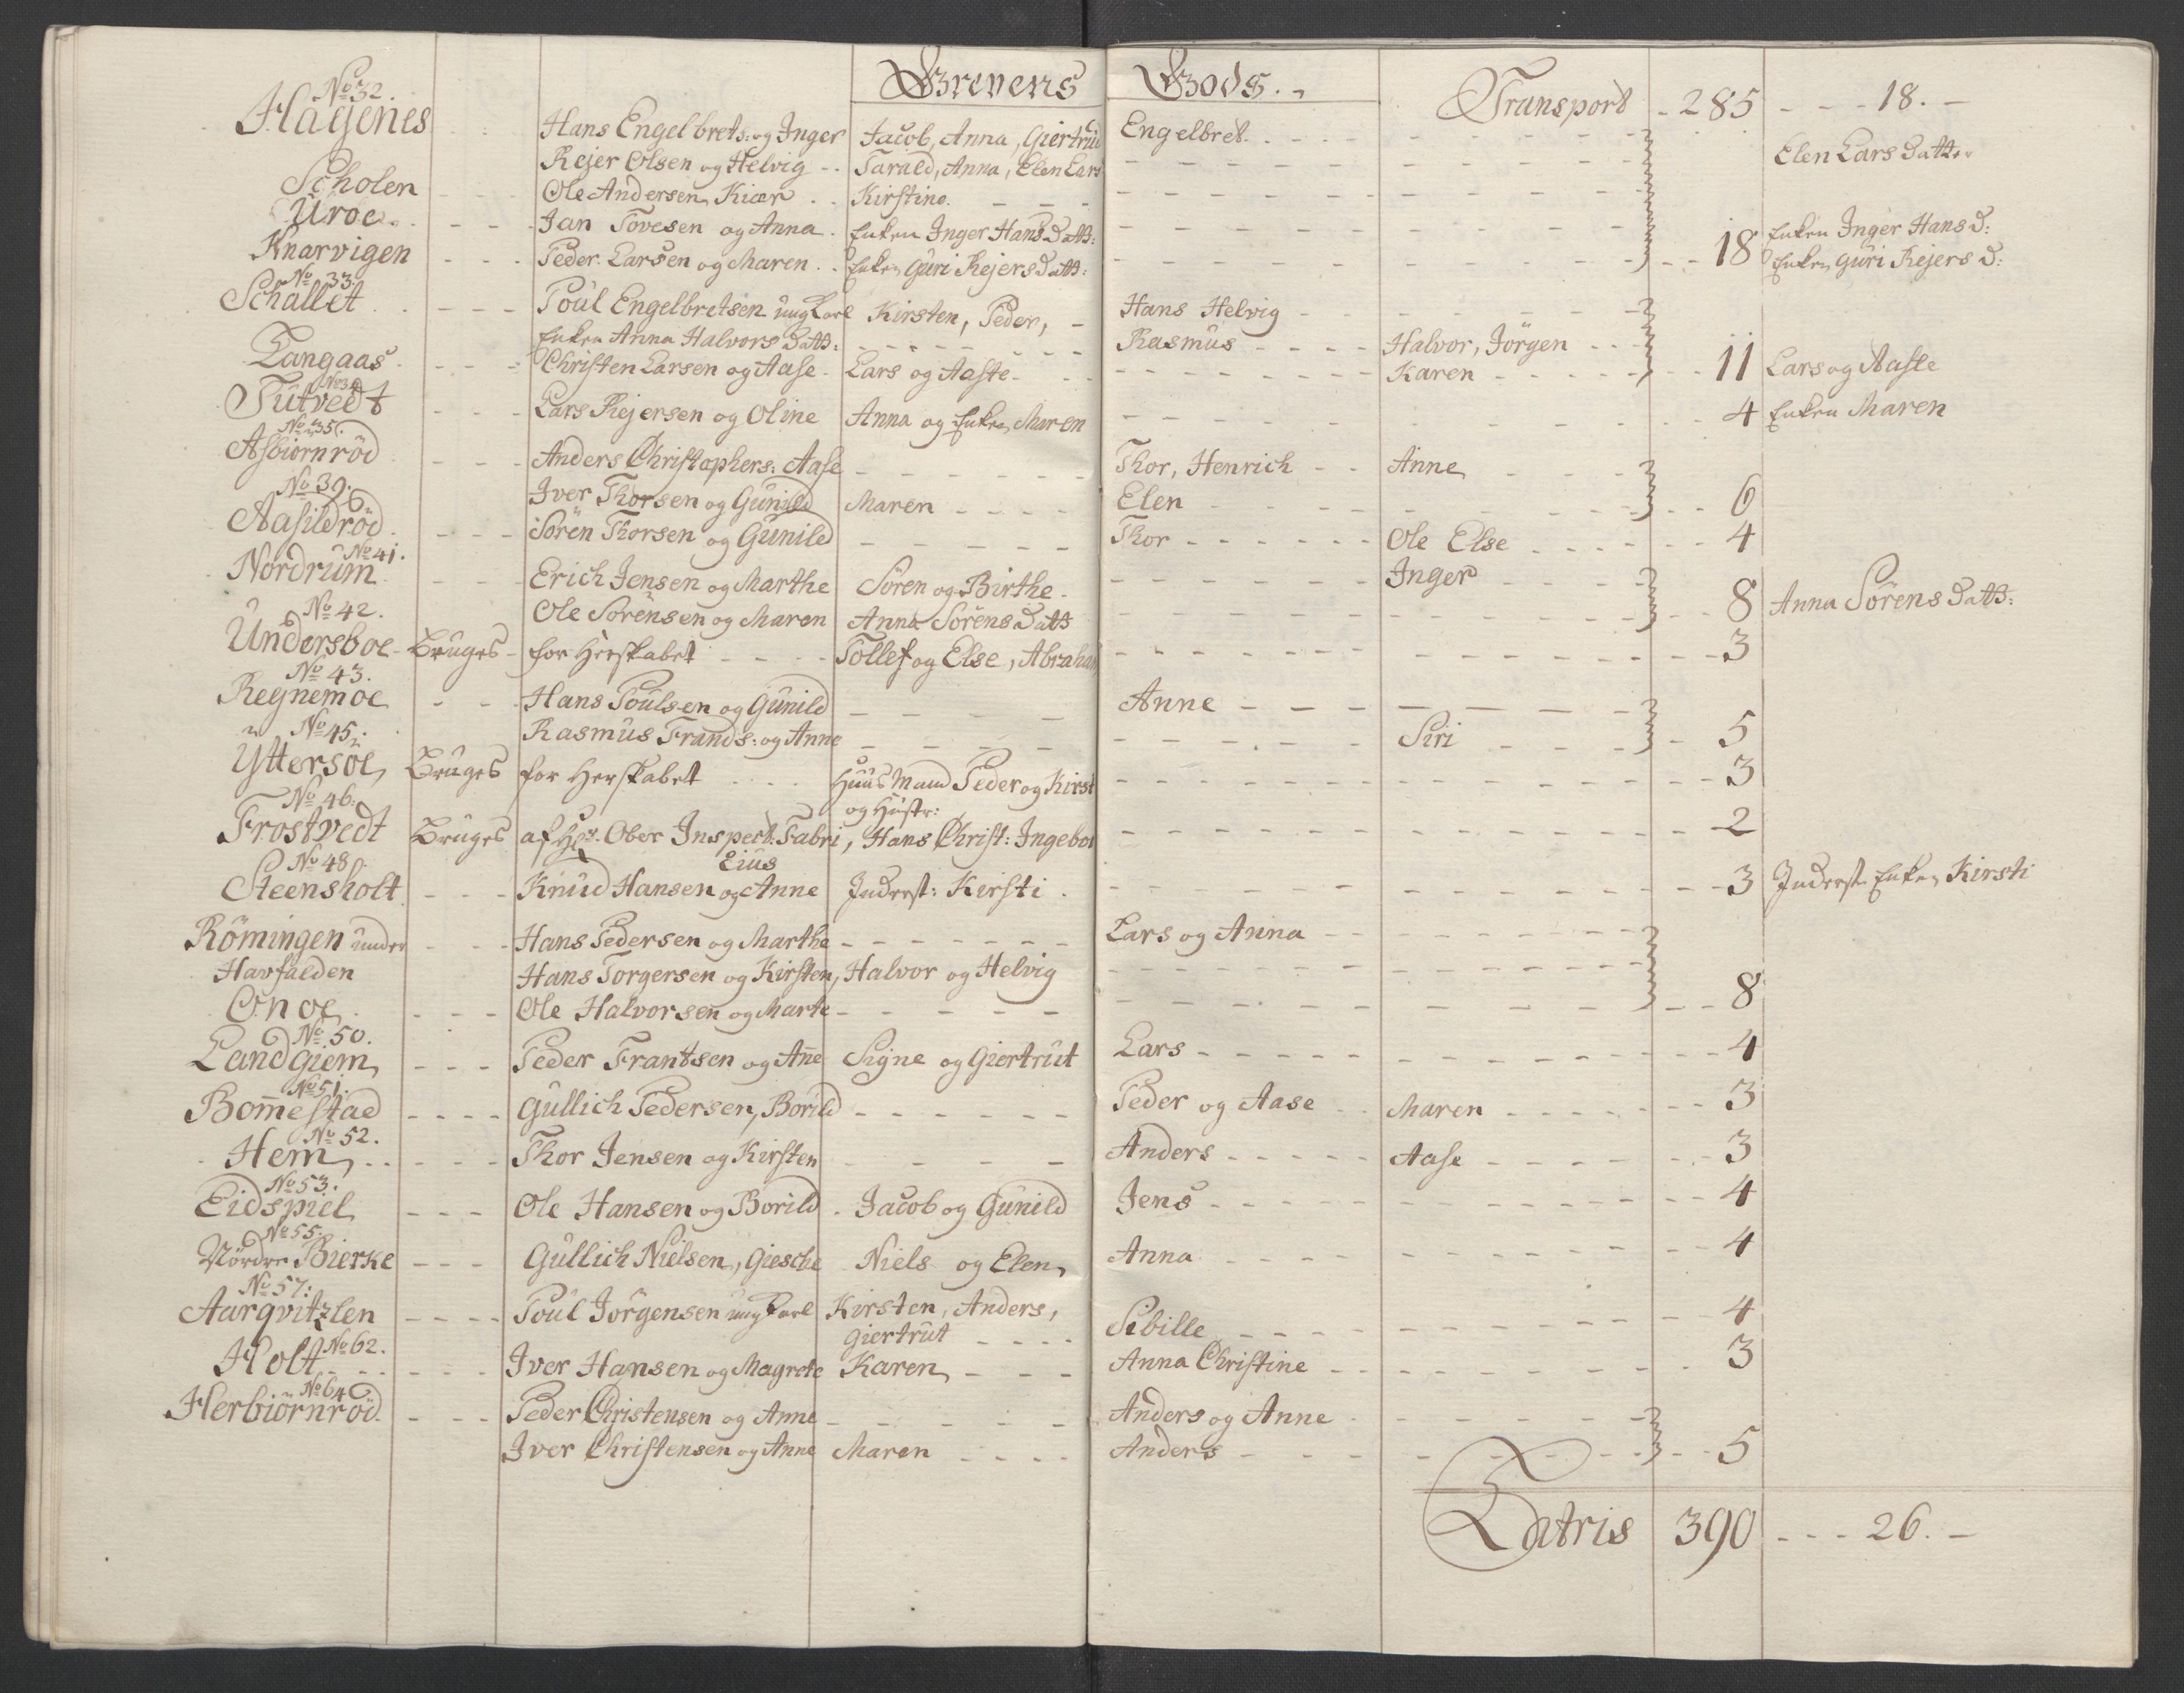 Grevens Gods. Transport - 285 - - - 18. -
No 32.
Hagenes Hans Engelbrets: og Inger Jacob, Anna, Giertrud Engelbret.
Rejer Olsen og Helvig Tarald, Anna, Elen Lars Elen Lars Datter
Scholen Ole Andersen Kiær Kirstine.
Uroe Jan Tovesen og Anna Enken Inger Hans Datt: Enken Inger Hans D:
Knarvigen Peder Larsen og Maren Enken Guri Rejers Datt: 18 Enken Guri Rejers D:
No 33.
Schallet Poul Engelbretsen ung Karl Kirsten, Peder, Hans Helvig
Enken Anna Halvors Datt: Rasmus Halvor, Jörgen
Langaas Christen Larsen og Aase Lars og Aaste Karen 11 Lars og Aaste
No 34
Tutvedt Lars Rejersen og Oline Anna og Enken Maren 4 Enken Maren
No 35.
Asbiornröd Anders Christophers: Aase Thor, Henrich Anne
Iver Thorsen og Gunild Maren Elen 6
No 39.
Aasildröd Sören Thorsen og Gunild Thor Ole Else 4
No 41.
Nordrum Erich Jensen og Marthe Sören og Birthe Inger
Ole Sörensen og Maren Anna Sörens Datt 8 Anna Sörens Datt:
No 42.
Undersboe Bruges for Herskabet Tollef og Else, Abraham 3
No 43.
Regnemoe Hans Poulsen og Gunild Anne
Rasmus Frands: og Anne Siri 5
No 45.
Yttersöe Bruges for Herskabet Huus Mand Peder og Kirst 3
og Hustr:
No 46.
Frostvedt Bruges af Hr. Ober Inspect: Fabri, Hans Christ: Ingebor 2
Eius
No 48.
Steensholt Knud Hansen og Anne Inderst: Kirsti 3 Inderste Enken Kirsti
Römingen under Hans Pedersen og Marthe Lars og Anna
Havfalden Hans Torgersen og Kirsten, Halvor og Helvig
Onoe Ole Halvorsen og Marte 8
No 50.
Landgiem Peder Frantsen og Ane Signe og Giertrut Lars 4
No 51.
Bomestad Gullich Pedersen, Borild Peder og Aase Maren 3
No 52.
Hem Thor Jensen og Kirsten Anders Aase 3
No 53.
Eidspiel Ole Hansen og Borild Jacob og Gunild Jens 4
No 55.
Nördre Bierke Gullich Nielsen, Giesche Niels og Elen Anna 4
No 57.
Aarqvitzlen Poul Jörgensen ung Karl Kirsten, Anders, 4
Giertrut Sibille
No 62.
Holt Iver Hansen og Magrete Karen Anna Christine 3
No 64
Herbiörnröd Peder Christensen og Anne Anders og Anne
Iver Christensen og Anne Maren Anders 5
Latris 390 - - - 26. -